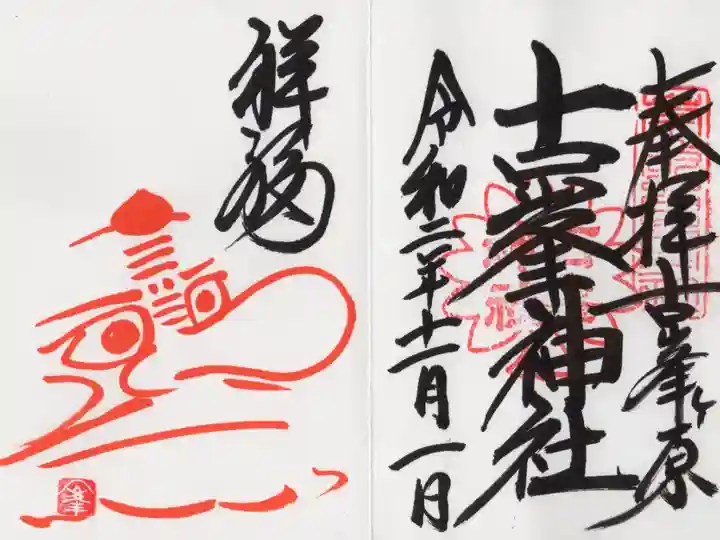 奉拝 古峯ヶ原
古峯神社
令和二年十一月一日
祥福